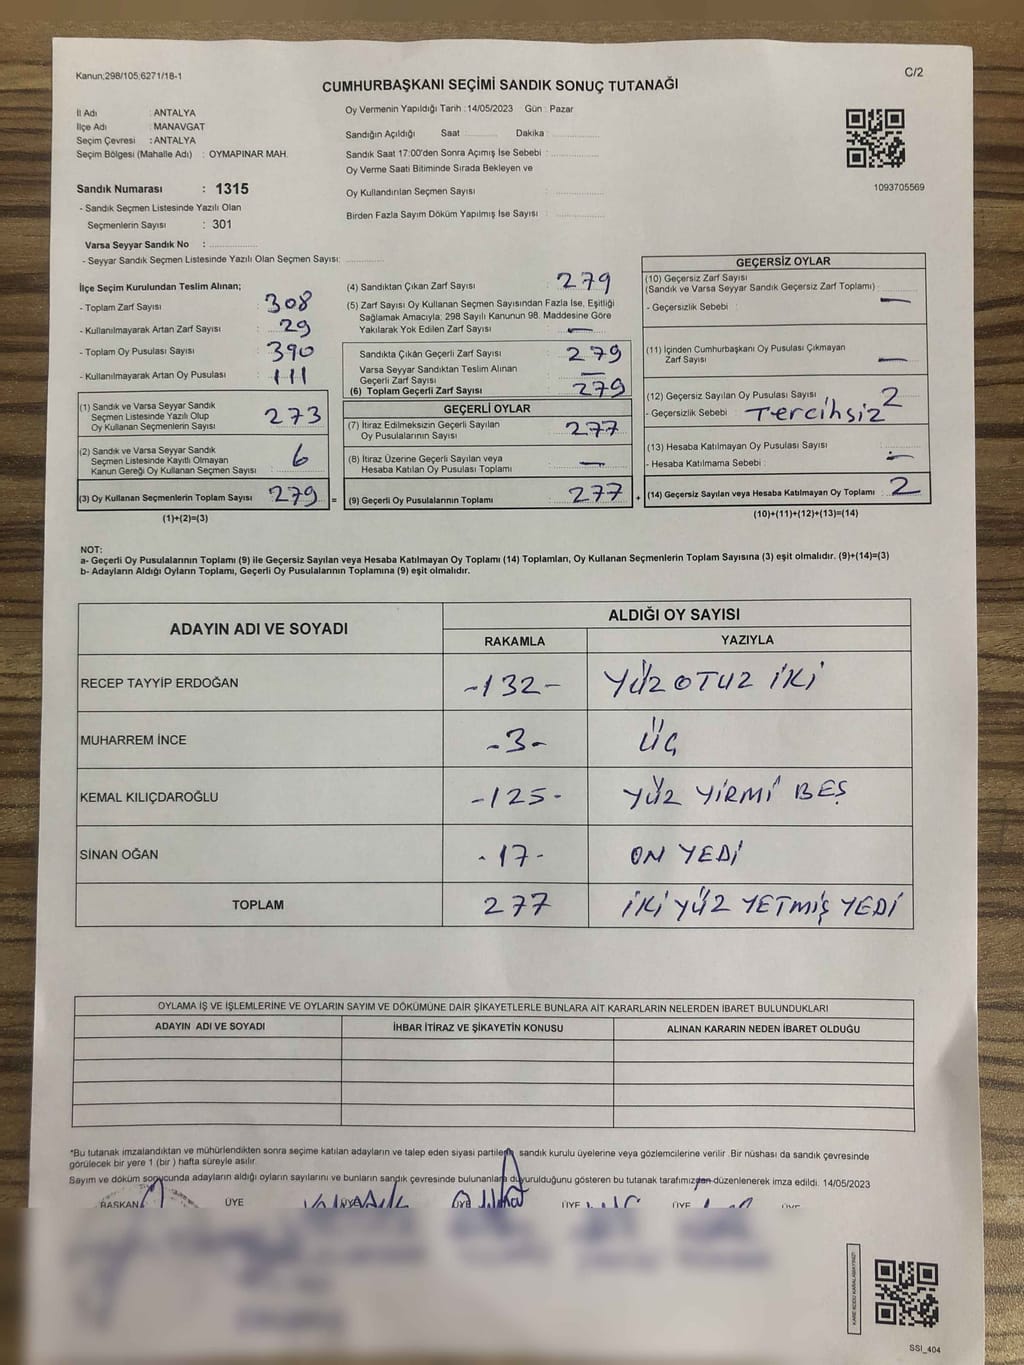 Kanun;298/105;6271/18-1
C/2
CUMHURBAŞKANI SEÇİMİ SANDIK SONUÇ TUTANAĞI
İl Adı : ANTALYA
İlçe Adı : MANAVGAT
Seçim Çevresi : ANTALYA
Seçim Bölgesi (Mahalle Adı) : OYMAPINAR MAH.
Sandık Numarası : 1315
- Sandık Seçmen Listesinde Yazılı Olan
Seçmenlerin Sayısı : 301
Varsa Seyyar Sandık No : ..............
- Seyyar Sandık Seçmen Listesinde Yazılı Olan Seçmen Sayısı: ..............
Oy Vermenin Yapıldığı Tarih : 14/05/2023 Gün : Pazar
Sandığın Açıldığı Saat ........... Dakika : ..............
Sandık Saat 17:00'den Sonra Açımış İse Sebebi : ..............
Oy Verme Saati Bitiminde Sırada Bekleyen ve
Oy Kullandırılan Seçmen Sayısı : ..............
Birden Fazla Sayım Döküm Yapılmış İse Sayısı : ..............
1093705569
İlçe Seçim Kurulundan Teslim Alınan;
- Toplam Zarf Sayısı : 308
- Kullanılmayarak Artan Zarf Sayısı : 29
- Toplam Oy Pusulası Sayısı : 390
- Kullanılmayarak Artan Oy Pusulası : 111
(1) Sandık ve Varsa Seyyar Sandık
Seçmen Listesinde Yazılı Olup
Oy Kullanan Seçmenlerin Sayısı : 273
(2) Sandık ve Varsa Seyyar Sandık
Seçmen Listesinde Kayıtlı Olmayan
Kanun Gereği Oy Kullanan Seçmen Sayısı : 6
(3) Oy Kullanan Seçmenlerin Toplam Sayısı : 279 =
(1)+(2)=(3)
(4) Sandıktan Çıkan Zarf Sayısı : 279
(5) Zarf Sayısı Oy Kullanan Seçmen Sayısından Fazla İse, Eşitliği
Sağlamak Amacıyla; 298 Sayılı Kanunun 98. Maddesine Göre
Yakılarak Yok Edilen Zarf Sayısı : —
Sandıkta Çıkan Geçerli Zarf Sayısı : 279
Varsa Seyyar Sandıktan Teslim Alınan
Geçerli Zarf Sayısı : —
(6) Toplam Geçerli Zarf Sayısı : 279
GEÇERLİ OYLAR
(7) İtiraz Edilmeksizin Geçerli Sayılan
Oy Pusulalarının Sayısı : 277
(8) İtiraz Üzerine Geçerli Sayılan veya
Hesaba Katılan Oy Pusulası Toplamı : —
(9) Geçerli Oy Pusulalarının Toplamı : 277 +
GEÇERSİZ OYLAR
(10) Geçersiz Zarf Sayısı
(Sandık ve Varsa Seyyar Sandık Geçersiz Zarf Toplamı) : —
- Geçersizlik Sebebi :
(11) İçinden Cumhurbaşkanı Oy Pusulası Çıkmayan
Zarf Sayısı : —
(12) Geçersiz Sayılan Oy Pusulası Sayısı : 2
- Geçersizlik Sebebi : Tercihsiz
(13) Hesaba Katılmayan Oy Pusulası Sayısı : —
- Hesaba Katılmama Sebebi :
(14) Geçersiz Sayılan veya Hesaba Katılmayan Oy Toplamı : 2
(10)+(11)+(12)+(13)=(14)
NOT:
a- Geçerli Oy Pusulalarının Toplamı (9) ile Geçersiz Sayılan veya Hesaba Katılmayan Oy Toplamı (14) Toplamları, Oy Kullanan Seçmenlerin Toplam Sayısına (3) eşit olmalıdır. (9)+(14)=(3)
b- Adayların Aldığı Oyların Toplamı, Geçerli Oy Pusulalarının Toplamına (9) eşit olmalıdır.
ADAYIN ADI VE SOYADI ALDIĞI OY SAYISI
RAKAMLA YAZIYLA
RECEP TAYYİP ERDOĞAN -132- YÜZ OTUZ İKİ
MUHARREM İNCE -3- ÜÇ
KEMAL KILIÇDAROĞLU -125- YÜZ YİRMİ BEŞ
SİNAN OĞAN -17- ON YEDİ
TOPLAM 277 İKİ YÜZ YETMİŞ YEDİ
OYLAMA İŞ VE İŞLEMLERİNE VE OYLARIN SAYIM VE DÖKÜMÜNE DAİR ŞİKAYETLERLE BUNLARA AİT KARARLARIN NELERDEN İBARET BULUNDUKLARI
ADAYIN ADI VE SOYADI İHBAR İTİRAZ VE ŞİKAYETİN KONUSU ALINAN KARARIN NEDEN İBARET OLDUĞU
*Bu tutanak imzalandıktan ve mühürlendikten sonra seçime katılan adayların ve talep eden siyasi partilerin sandık kurulu üyelerine veya gözlemcilerine verilir .Bir nüshası da sandık çevresinde
görülecek bir yere 1 (bir ) hafta süreyle asılır.
Sayım ve döküm sonucunda adayların aldığı oyların sayılarını ve bunların sandık çevresinde bulunanlara duyurulduğunu gösteren bu tutanak tarafımızdan düzenlenerek imza edildi. 14/05/2023
BAŞKAN ÜYE ÜYE ÜYE ÜYE ÜYE ÜYE
SSI_404